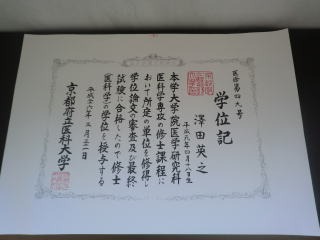 医修第四九号
学位記
澤田英之
平成元年四月十八生
本学大学院医学研究科
医科学専攻の修士課程に
おいて所定の単位を修得し
学位論文の審査及び最終
試験に合格したので修士
(医科学)の学位を授与する
平成二六年三月二一日
京都府立医科大学